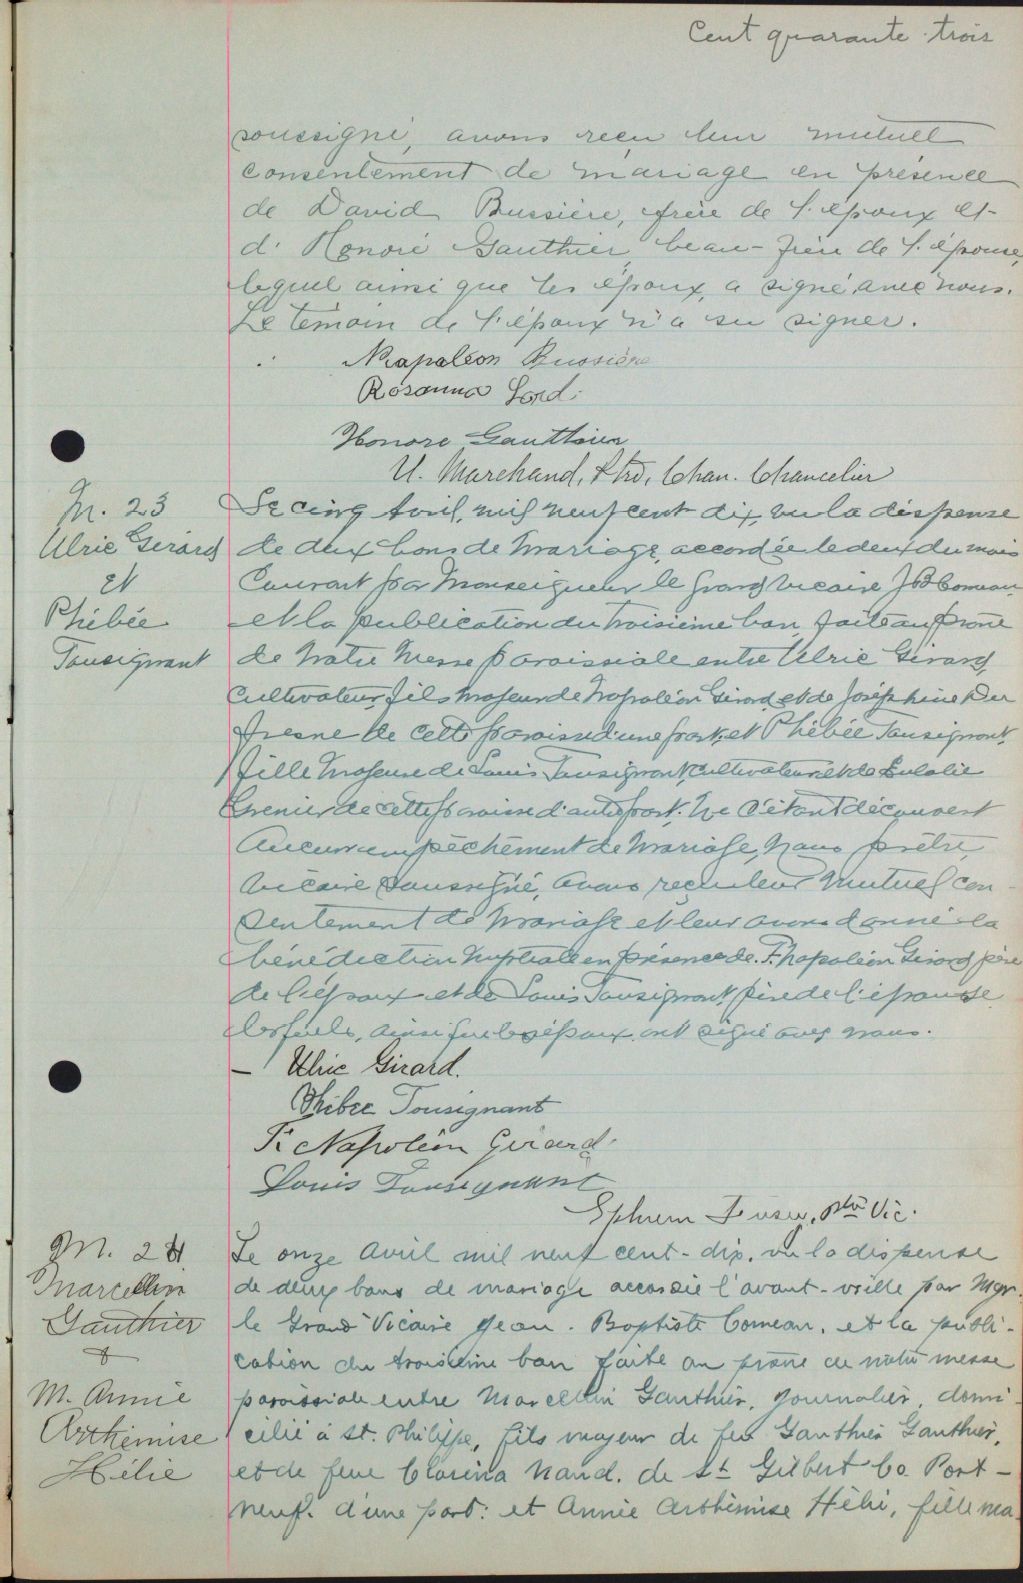 Cent quarante trois
soussigné, avons reçu leur mutuel
consentement de mariage en présence
de David Bussière, frère de l'époux et
d'Honoré Gauthier, beau-frère de l'épouse,
lequel ainsi que les époux, a signé avec nous.
Le témoin de l'époux n'a su signer.
Napoléon Bussière
Rosanna Lord.
Honore Gauthier
U. Marchand, Ptre, Chan. Chancelier
M. 23
Ulric Girard
et
Phébée
Tousignant
Le cinq Avril, mil neuf cent dix, vu la dispense
de deux bans de Mariage, accordée le deux du mois
Courant par Monseigneur le Grand Vicaire J B Comeau,
et la publication du troisième ban, faite au prône
de Notre Messe paroissiale entre Ulric Girard,
Cultivateur, fils majeur de Napoléon Girard, et de Joséphine Du
fresne de cette paroisse d'une part, et Phébée Tousignant,
fille Majeure de Louis Tousignant, cultivateur, et de Eulalie
Grenier de cette paroisse d'autre part; Ne s'étant découvert
Aucun empêchement de Mariage, Nous prêtre,
Vicaire soussigné, Avons reçu leur Mutuel con-
sentement de Mariage et leur avons donné la
bénédiction Nuptiale en présence de F. Napoléon Girard père
de l'époux et de Louis Tousignant, père de l'épouse
lesquels, ainsi que les époux ont signé avec nous.
— Ulric Girard.
Phibee Tousignant
F. Napoléon Girard.
Louis Tousignant
Ephrem ptre Vic.
M. 24
Marcellin
Gauthier
&
M. Annie
Arthémise
Hélie
Le onze Avril mil neuf cent-dix, vu la dispense
de deux bans de mariage accordée l'avant-veille par Mgr.
le Grand Vicaire Jean-Baptiste Comeau, et la publi-
cation du troisième ban faite au prône de notre messe
paroissiale entre Marcellin Gauthier, journalier, domi-
cilié à St. Philippe, fils majeur de feu Gauthier Gauthier,
et de feue Clarina Naud. de St Gilbert Co. Port-
neuf. d'une part: et Annie Arthémise Héli, fille ma-